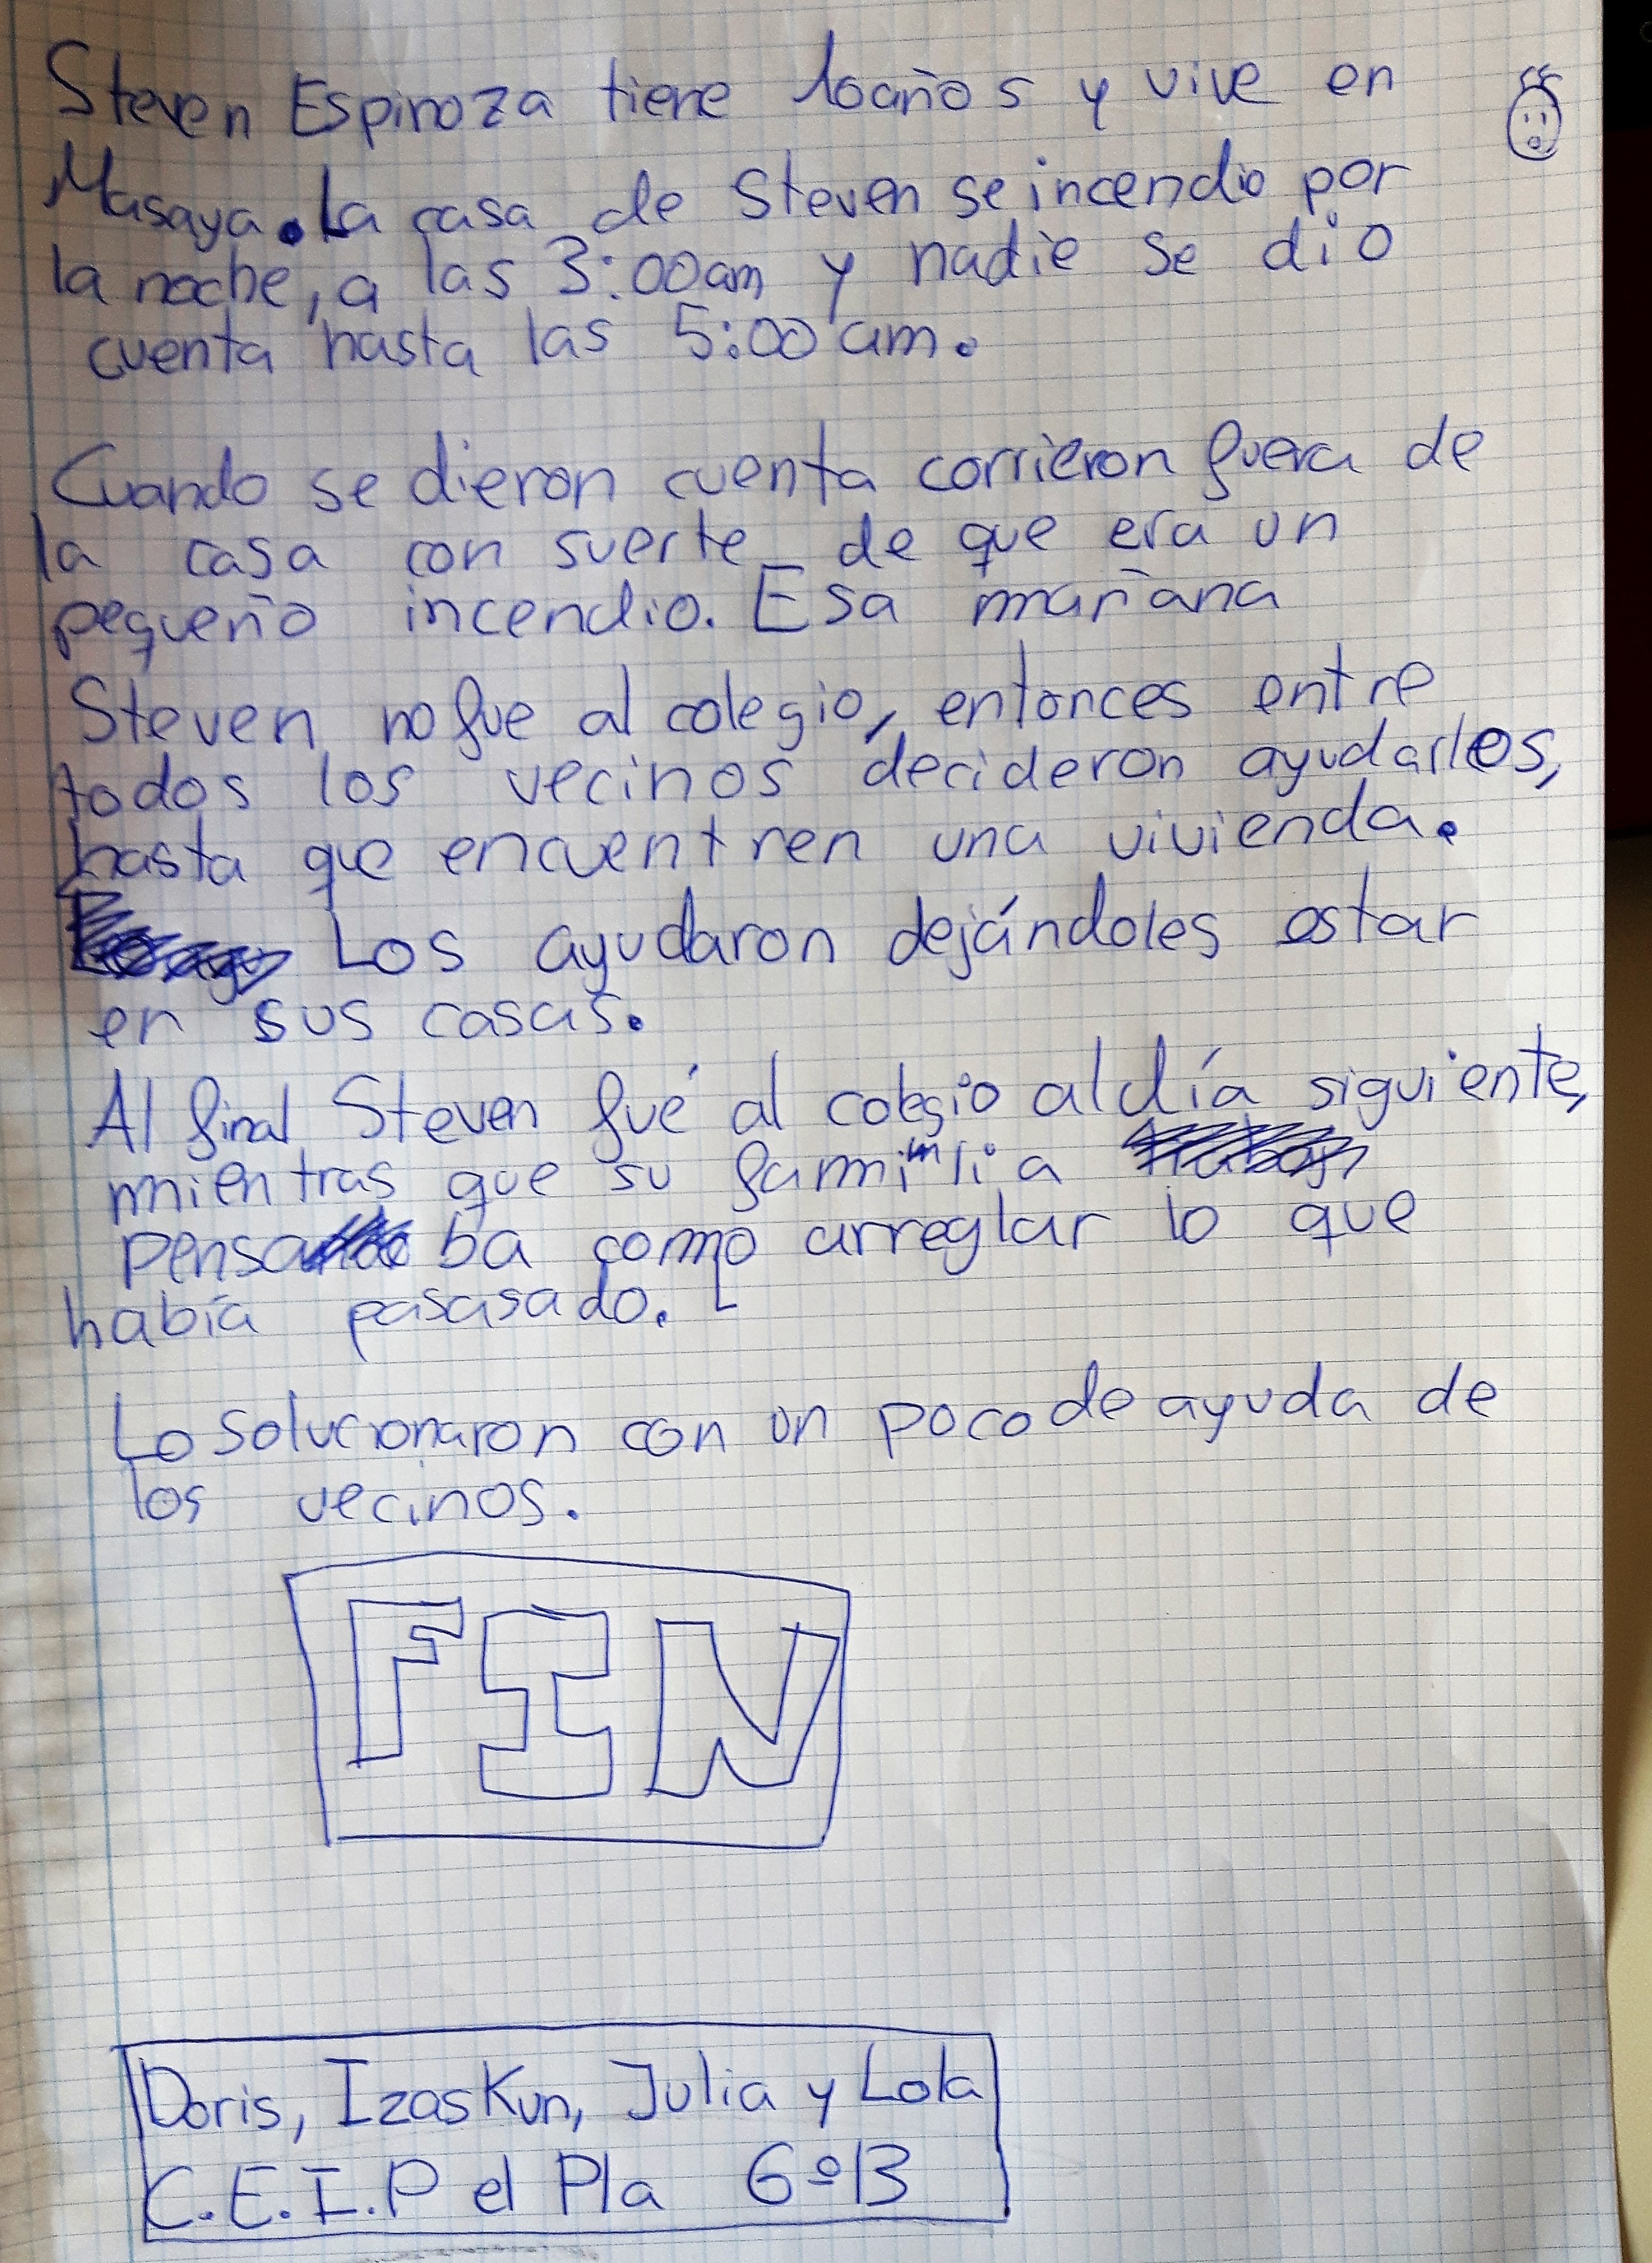 Steven Espinoza tiene 10años y vive en
Masaya. La casa de Steven se incendio por
la noche, a las 3:00am y nadie se dio
cuenta hasta las 5:00 am.
Cuando se dieron cuenta corrieron fuera de
la casa con suerte de que era un
pequeño incendio. Esa mañana
Steven no fue al colegio, entonces entre
todos los vecinos decideron ayudarles,
hasta que encuentren una vivienda.
Los ayudaron dejándoles estar
en sus casas.
Al final Steven fué al colegio al día siguiente,
mientras que su familia
pensaba como arreglar lo que
había pasasado.
Lo solucionaron con un poco de ayuda de
los vecinos.
FIN
Doris, Izaskun, Julia y Lola
C.E.I.P el Pla 6ºB